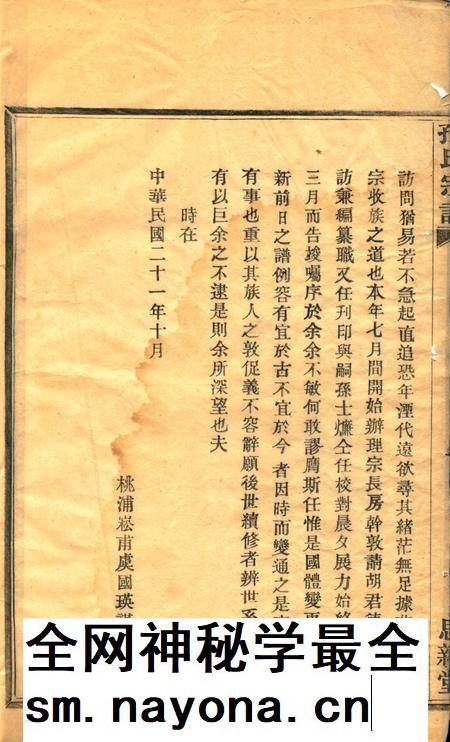 氏宗譜
訪問猶易若不急起直追恐年湮代遠欲尋其緒茫無足據
宗收族之道也本年七月間開始辦理宗長房幹敦請胡君
訪兼編纂職又任刊印與嗣孫士仝任校對晨夕展力始終
三月而告竣囑序於余余不敏何敢謬膺斯任惟是國體變更
新前日之譜例容有宜於古不宜於今者因時而變通之是
有事也重以其族人之敦促義不容辭願後世續修者辨世系
有以巨余之不逮是則余所深望也夫
時在
中華民國二十一年十月
桃浦崧甫虞國瑛
堂
全网神秘学最全
sm.nayona.cn